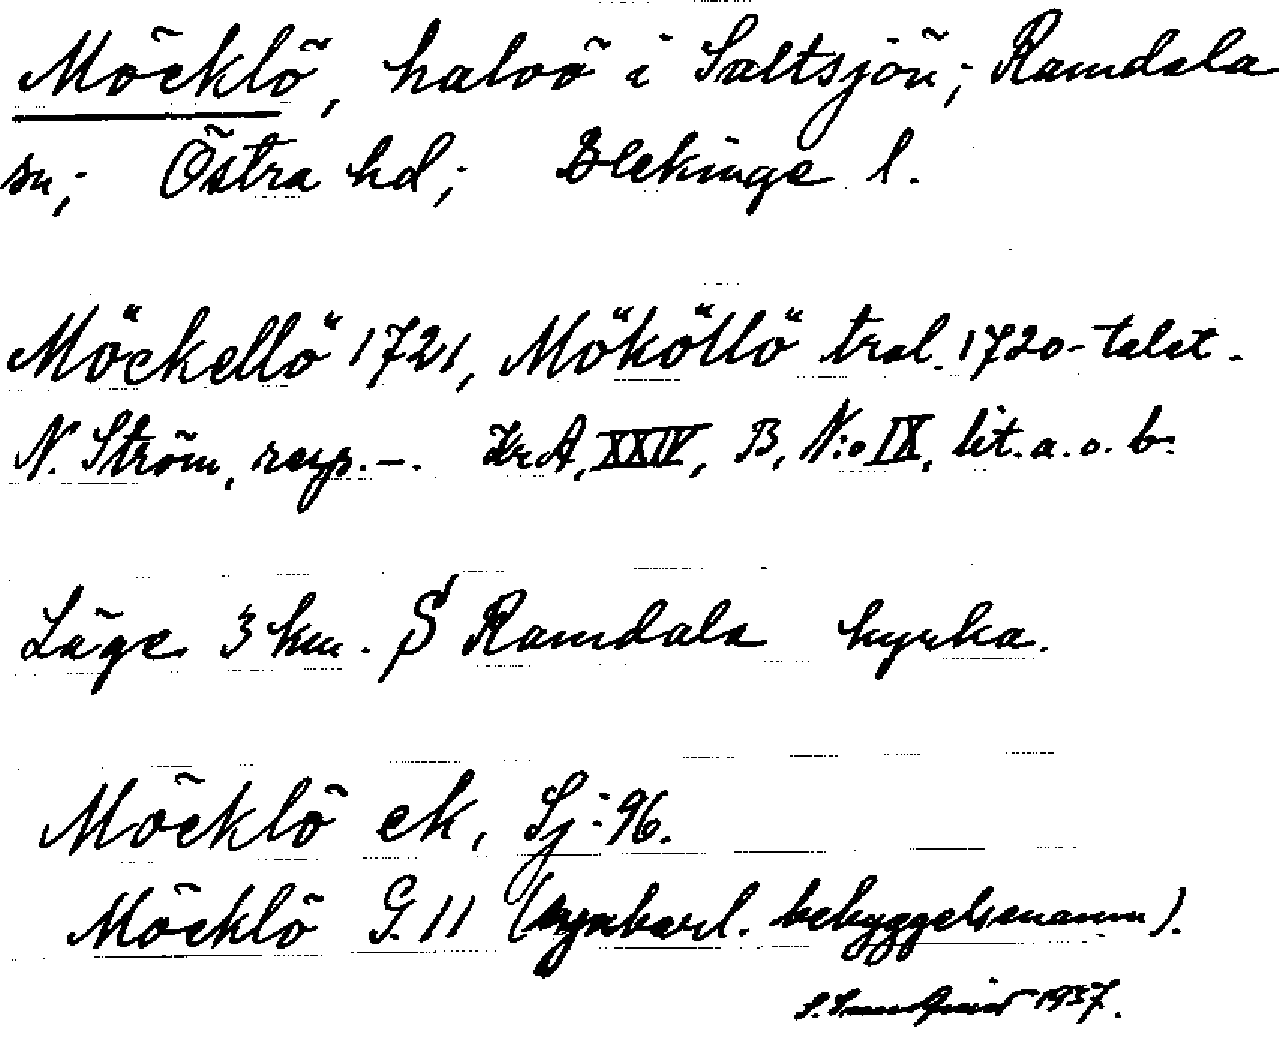 Möcklö, halvö i Saltsjön; Ramdala
sn; Östra hd; Blekinge l.
Möckellö 1721, Mököllö tral. 1720-talet.
N. Ström, resp. -. KrA, XXIV, B, N:o IX, lit. a. o. b.
Läge 3 km. S Ramdala kyrka.
Möcklö ek, Sj:96.
Möcklö G. 11 (uppbarl. bebyggelsenamn).
1937.